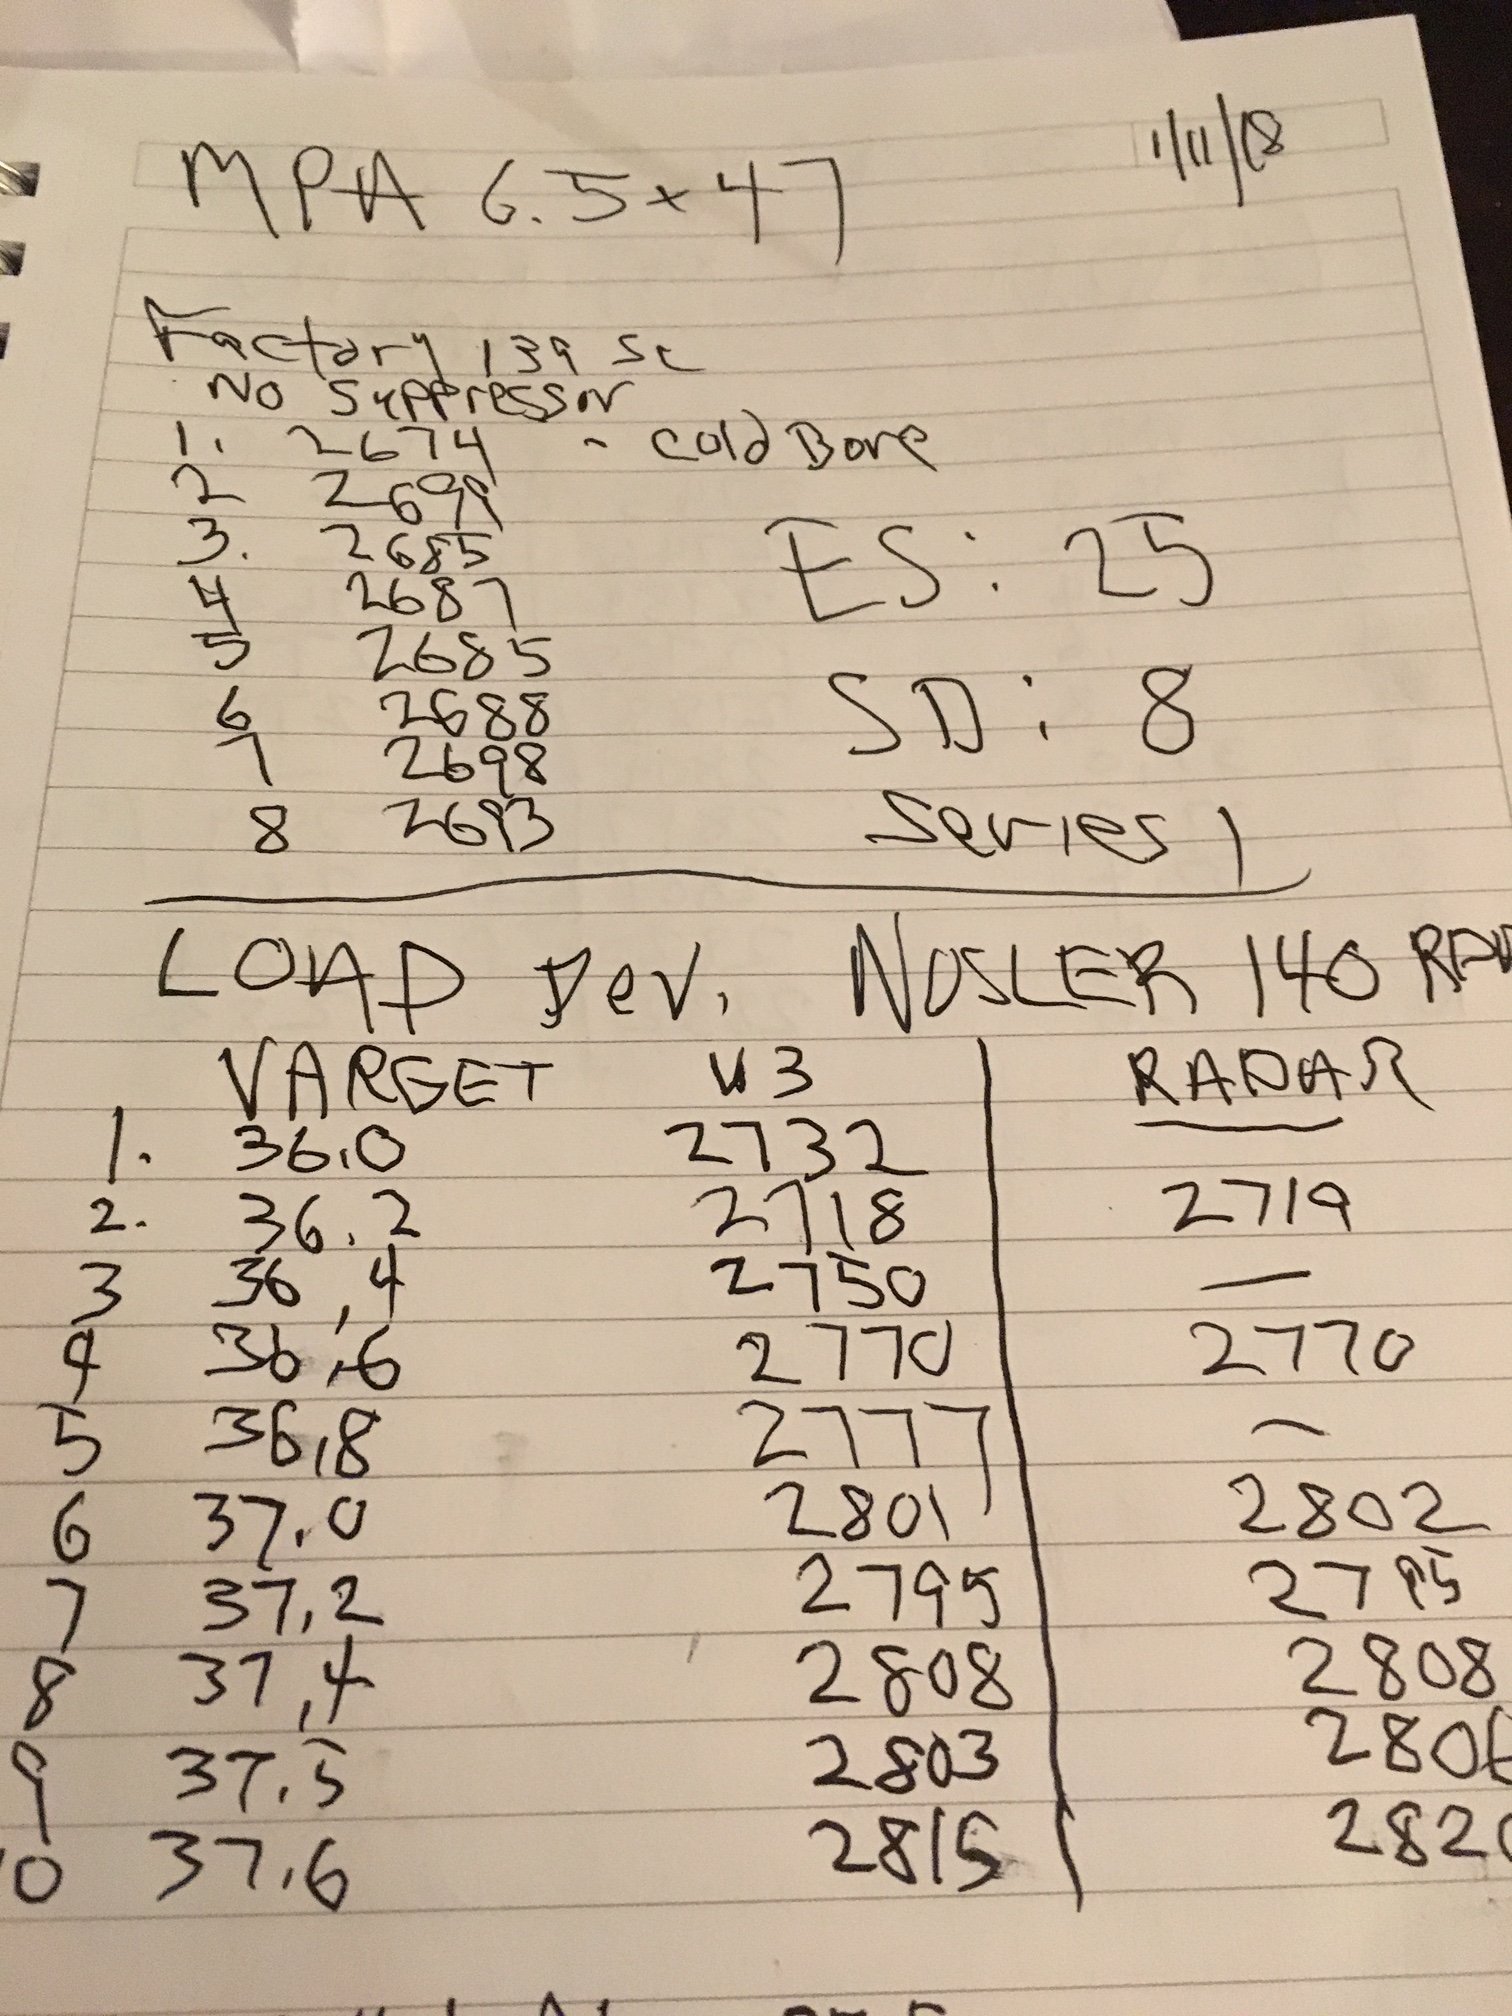 MPA 6.5x47 1/11/18
Factory 139 Sc
No Suppressor
1. 2674 - Cold Bore
2 2699
3. 2685 ES: 25
4 2687
5 2685
6 2688 SD: 8
7 2698
8 2693 Series 1
LOAD Dev. NOSLER 140
VARGET V3 RADAR
1. 36.0 2732
2. 36.2 2718 2719
3 36.4 2750 —
4 36.6 2770 2770
5 36.8 2777 —
6 37.0 2801 2802
7 37.2 2795 2795
8 37.4 2808 2808
9 37.5 2803 2806
10 37.6 2815